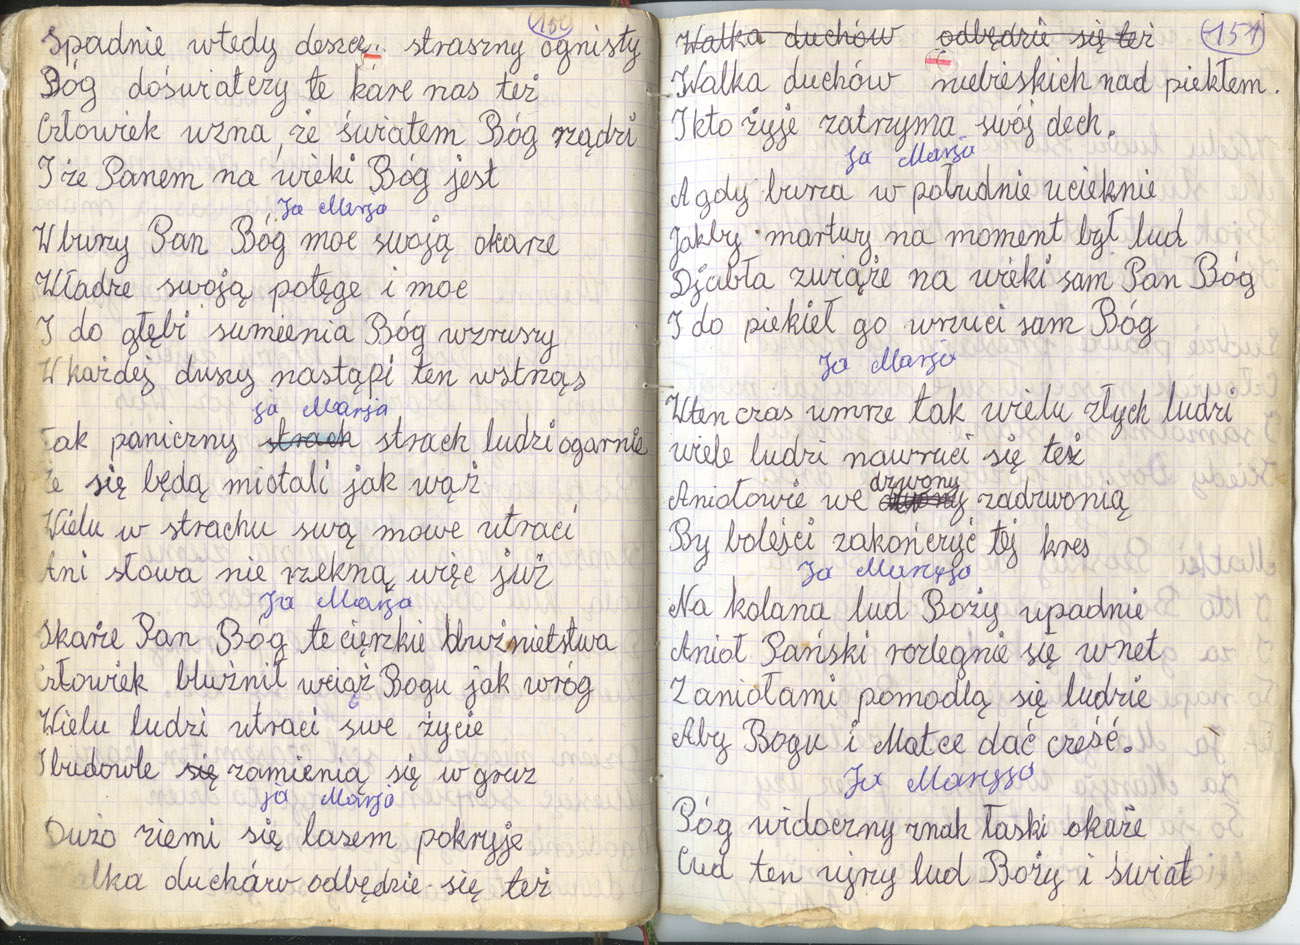 150
Spadnie wtedy deszcz straszny ognisty
Bóg doświatczy te kare nas też
Człowiek uzna, że światem Bóg rządzi
I że Panem na wieki Bóg jest
Ja Marja
W burzy Pan Bóg moc swoją okaze
Władze swoją potęgę i moc
I do głębi sumienia Bóg wzruszy
W każdej duszy nastąpi ten wstrząs
Ja Marja
Tak paniczny strach strach ludzi ogarnie
że się będą miotali jak wąż
Wielu w strachu swą mowe utraci
Ani słowa nie rzekną więc już
Ja Marja
Skaże Pan Bóg te cięrzkie bluźnietstwa
człowiek bluźnił wciąż Bogu jak wróg
Wielu ludzi utraci swe życie
I budowle się zamienią się w gruz
Ja Marja
Dużo ziemi się lasem pokryje
alka duchów odbędzie się też
151
Walka duchów odbędzie się też
Walka duchów niebieskich nad piekłem.
I kto żyje zatrzyma swój dech.
Ja Marja
A gdy burza w południe ucieknie
Jakby martwy na moment był lud
Djabła zwiąże na wieki sam Pan Bóg
I do piekieł go wrzuci sam Bóg
Ja Marja
Wten czas umrze tak wielu złych ludzi
wiele ludzi nawruci się też
dzwony
Aniołowie we zadzwonią
By boleści zakończyć tej kres
Ja Maryja
Na kolana lud Boży upadnie
Anioł Pański rozlegnie się wnet
Z aniołami pomodlą się ludzie
Aby Bogu i Matce dać cześć.
Ja Maryja
Bóg widoczny znak łaski okaże
Cud ten ujzy lud Boży i świat